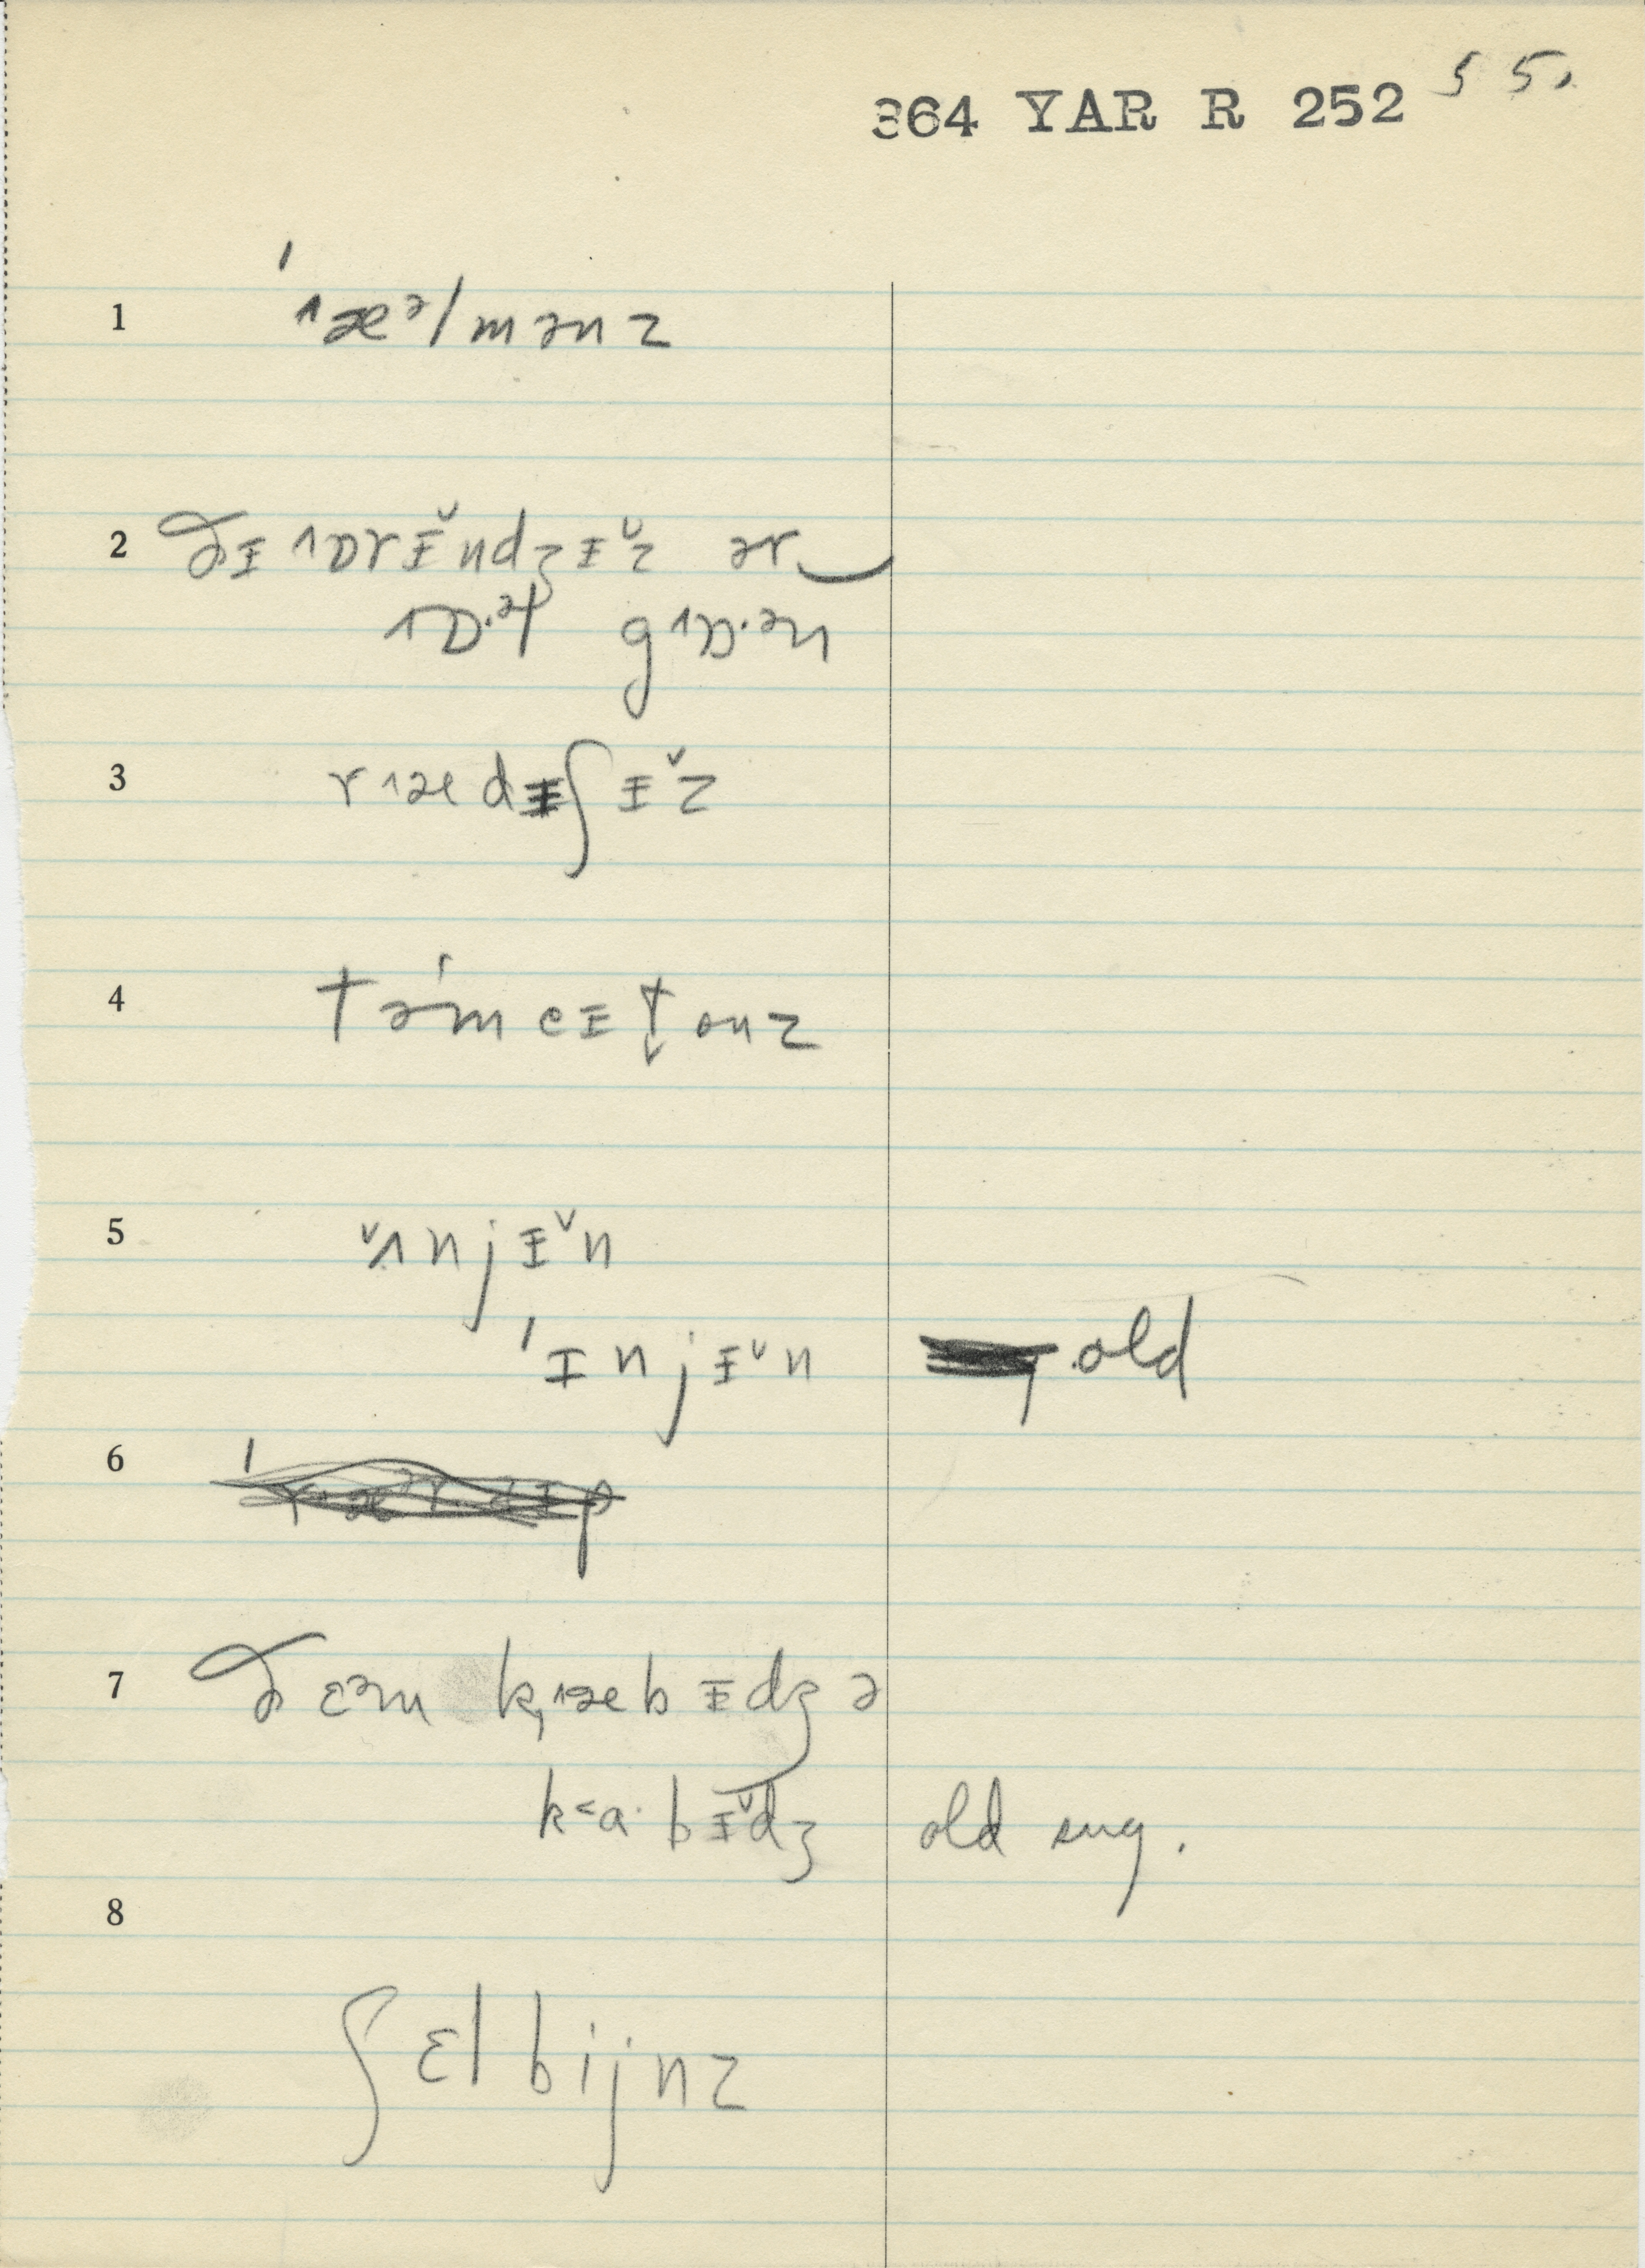 364 YAR R 252 55.
1 ' ˄æᵊ/mənz
2 ðɪ ˄ɒrɪ̆ndʒɪ̆z ər‿
˄ɒ.ᵊl g˄ɒ.ᵊn
3 r˄ædɪʃɪ̆z
4 təˈmeɪt̬onz
5 ˅˄njɪ̆n
ˈɪnjɪ̆n old
6
7 ðɛᵊm k˄æbɪdʒə
k<a·bɪ̆dʒ old sug.
8
ʃɛlbijnz